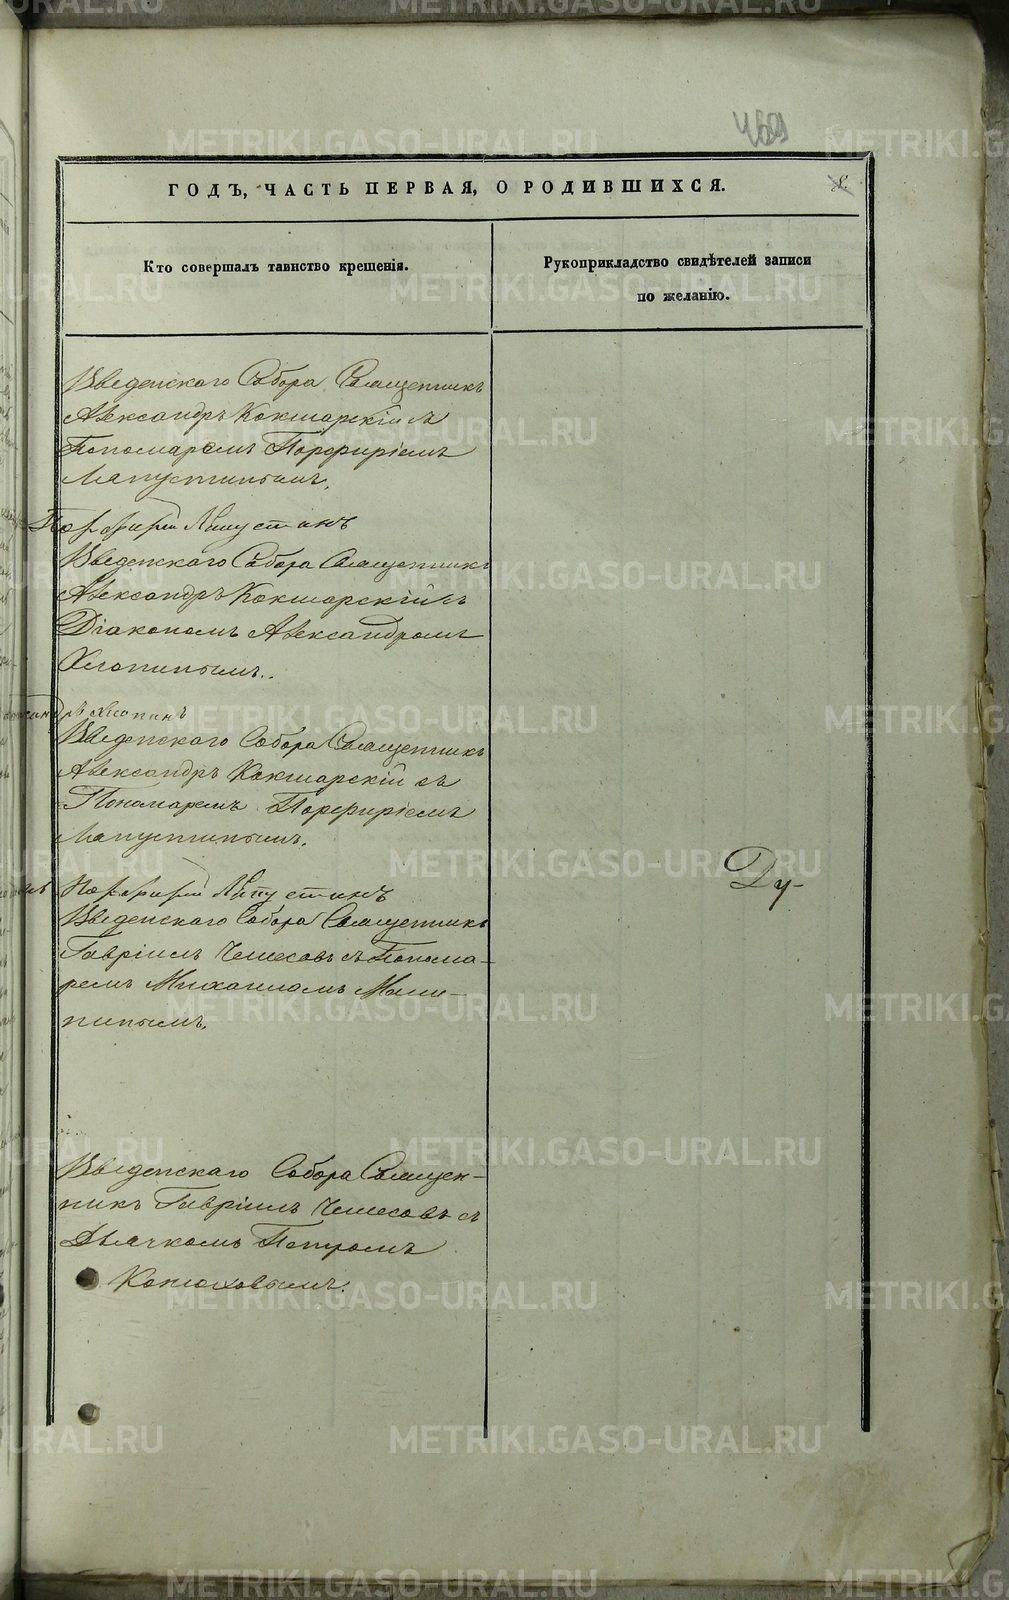 469
ГОДЪ, ЧАСТЬ ПЕРВАЯ, О РОДИВШИХСЯ.
Кто совершалъ таинство крещенія.
Рукоприкладство свидѣтелей записи
по желанію.
Введенскаго Собора Священникъ
Александръ Кокшарскій съ
Пономаремъ Порфиріемъ
Лапустинымъ.
Порфирій Лапустинъ
Введенскаго Собора Священникъ
Александръ Кокшарскій съ
Діакономъ Александромъ
Хлопинымъ.
Хлопинъ
Введенскаго Собора Священникъ
Александръ Кокшарскій съ
Пономаремъ Порфиріемъ
Лапустинымъ.
Порфирій Лапустинъ
Введенскаго Собора Священникъ
Гавріилъ Чемесовъ съ Понома-
ремъ Михаиломъ
Ду-
Введенскаго Собора Священ-
никъ Гавріилъ Чемесовъ съ
Дьячкомъ Петромъ
Конюховымъ.
METRIKI.GASO-URAL.RU